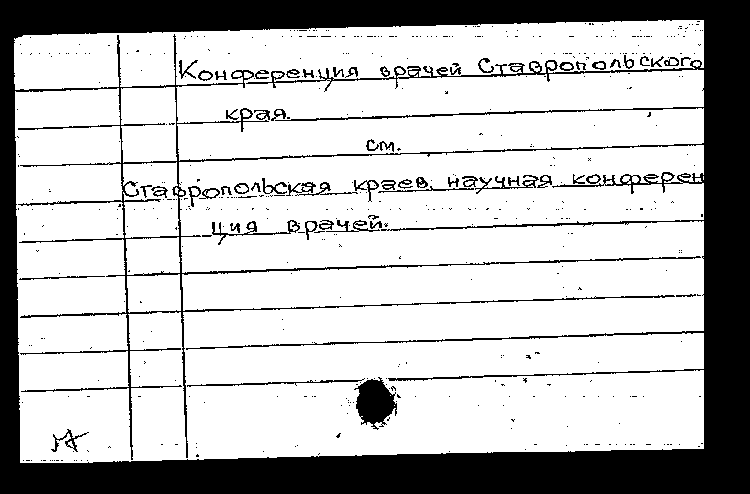 Конференция врачей Ставропольского
края.
см.
Ставропольская краев. научная конферен
ция врачей.